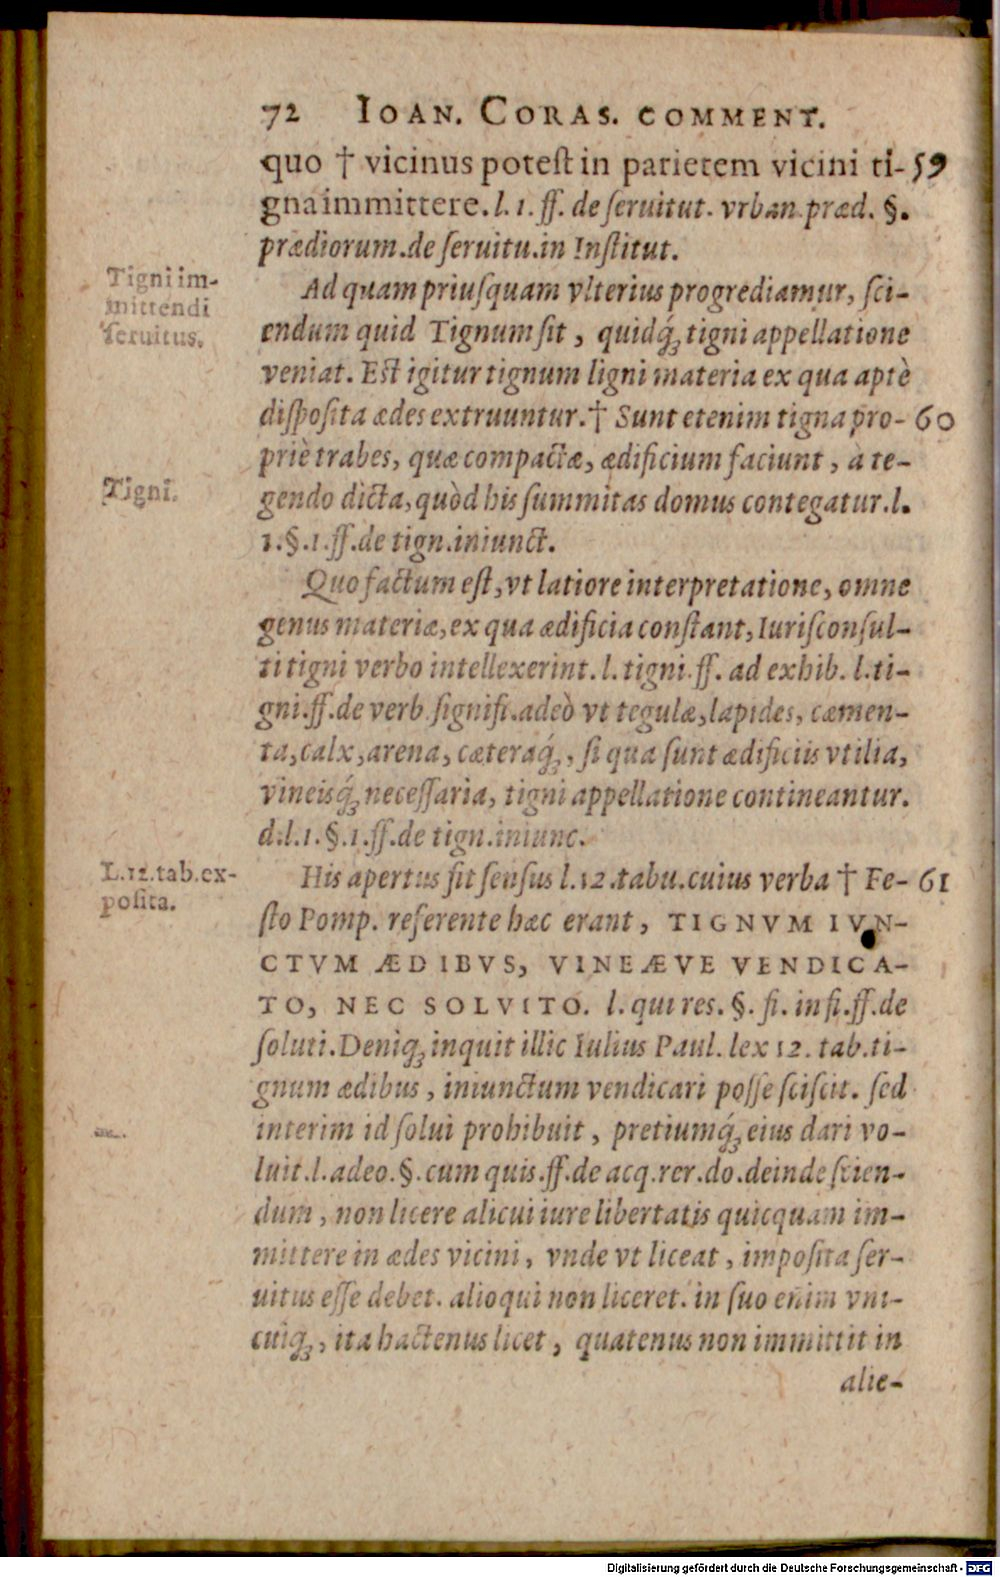 72 IOAN. CORAS. COMMENT.
quo † vicinus poteſt in parietem vicini ti- 59
gna immittere. l. 1. ff. de ſeruitut. vrban. præd. §.
prædiorum. de ſeruitu. in Inſtitut.
Tigni im-
mittendi
ſeruitus.
Ad quam priuſquam vlterius progrediamur, ſci-
endum quid Tignum ſit, quidq́ꝫ tigni appellatione
veniat. Eſt igitur tignum ligni materia ex qua aptè
diſpoſita ædes extruuntur. † Sunt etenim tigna pro- 60
priè trabes, quæ compactæ, ædificium faciunt, à te-
Tigni.
gendo dicta, quòd his ſummitas domus contegatur. l.
1. §. 1. ff. de tign. iniunct.
Quo factum eſt, vt latiore interpretatione, omne
genus materiæ, ex qua ædificia conſtant, Iuriſconſul-
ti tigni verbo intellexerint. l. tigni. ff. ad exhib. l. ti-
gni. ff. de verb. ſignifi. adeò vt tegulæ, lapides, cæmen-
ta, calx, arena, cæteraq́ꝫ, ſi qua ſunt ædificiis vtilia,
vineisq́ꝫ neceſſaria, tigni appellatione contineantur.
d. l. 1. §. 1. ff. de tign. iniunc.
L. 12. tab. ex-
poſita.
His apertus fit ſenſus l. 12. tabu. cuius verba † Fe- 61
ſto Pomp. referente hæc erant, TIGNVM IVN-
CTVM ÆDIBVS, VINEÆVE VENDICA-
TO, NEC SOLVITO. l. qui res. §. fi. in fi. ff. de
ſoluti. Deniqꝫ inquit illic Iulius Paul. lex 12. tab. ti-
gnum ædibus, iniunctum vendicari poſſe ſciſcit. ſed
interim id ſolui prohibuit, pretiumq́ꝫ eius dari vo-
luit. l. adeo. §. cum quis. ff. de acq. rer. do. deinde ſcien-
dum, non licere alicui iure libertatis quicquam im-
mittere in ædes vicini, vnde vt liceat, impoſita ſer-
uitus eſſe debet. alioqui non liceret. in ſuo enim vni-
cuiqꝫ, ita hactenus licet, quatenus non immittit in
alie-
Digitalisierung gefördert durch die Deutsche Forschungsgemeinschaft - DFG